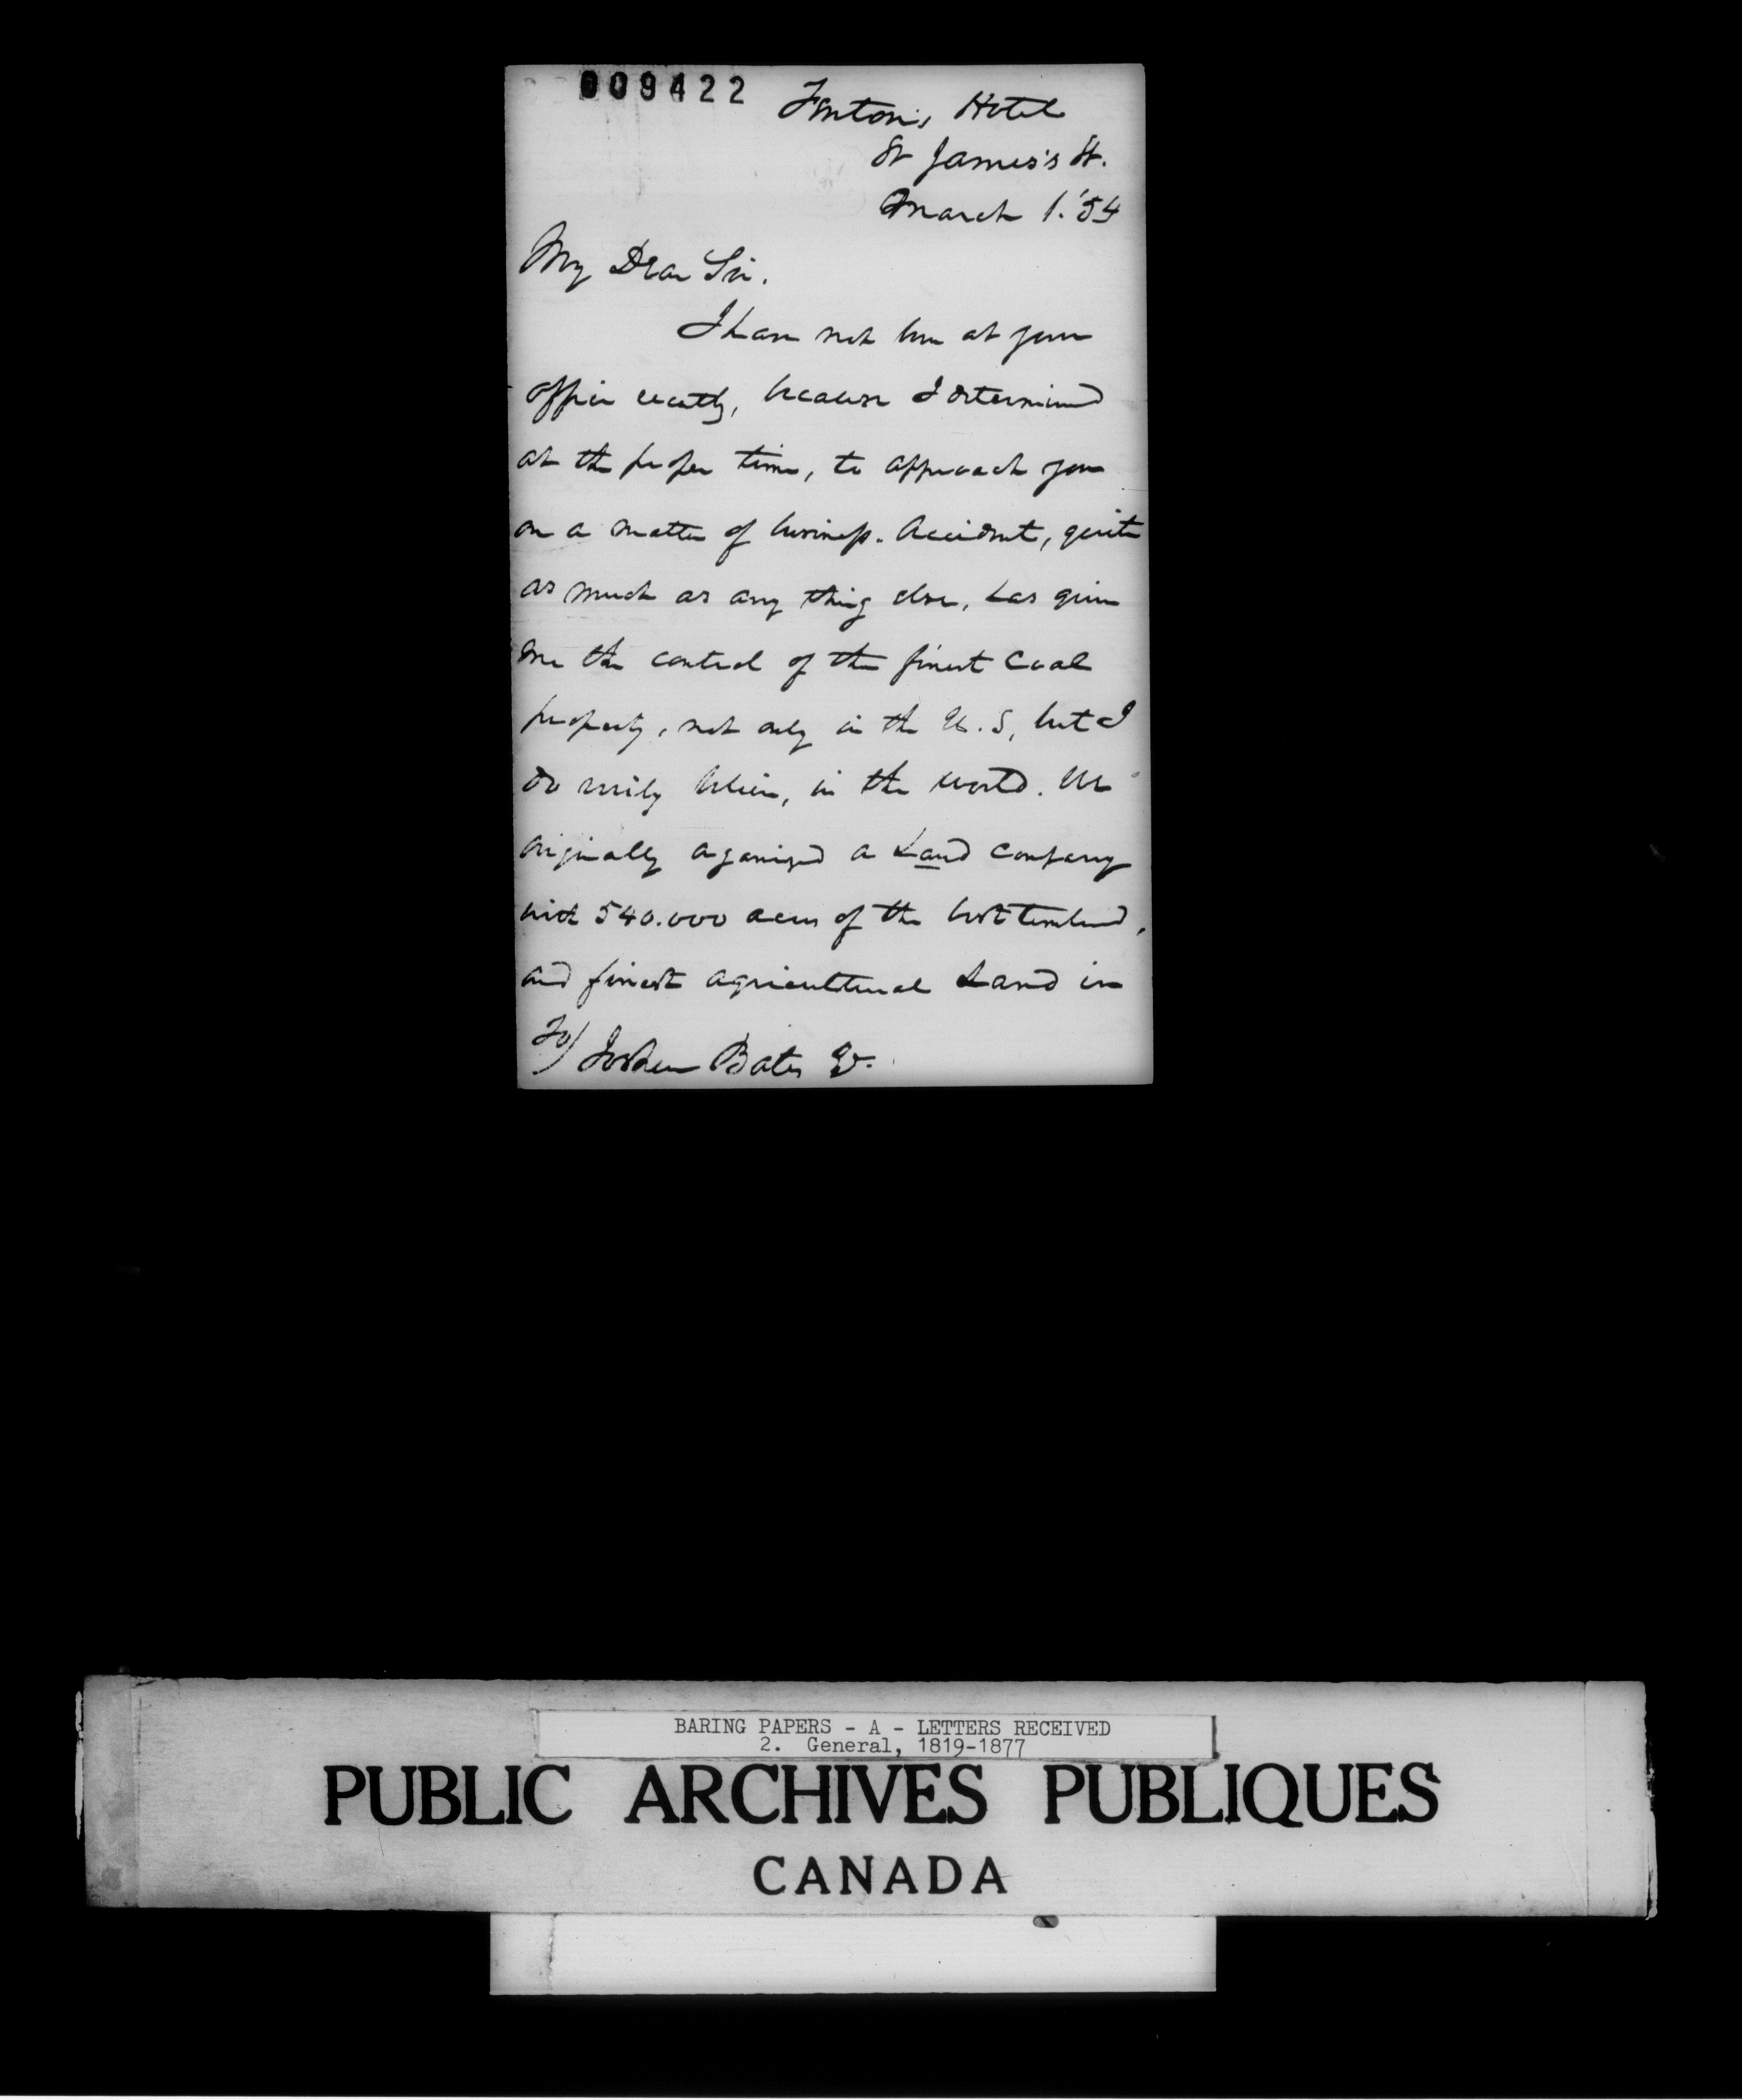 009422
Fenton's Hotel
St James's St.
March 1. '54
My Dear Sir.
I have not been at your
office recently, because I determined
at the proper time, to approach you
on a matter of business. Accident, quite
as much as any thing else, has given
me the control of the finest Coal
property, not only in the U.S, but I
do verily believe, in the world. We
originally organized a Land Company
with 540.000 acres of the best timbered,
and finest agricultural Land in
To/ Joshua Bates Esq.
BARING PAPERS - A - LETTERS RECEIVED
2. General, 1819-1877
PUBLIC ARCHIVES PUBLIQUES
CANADA